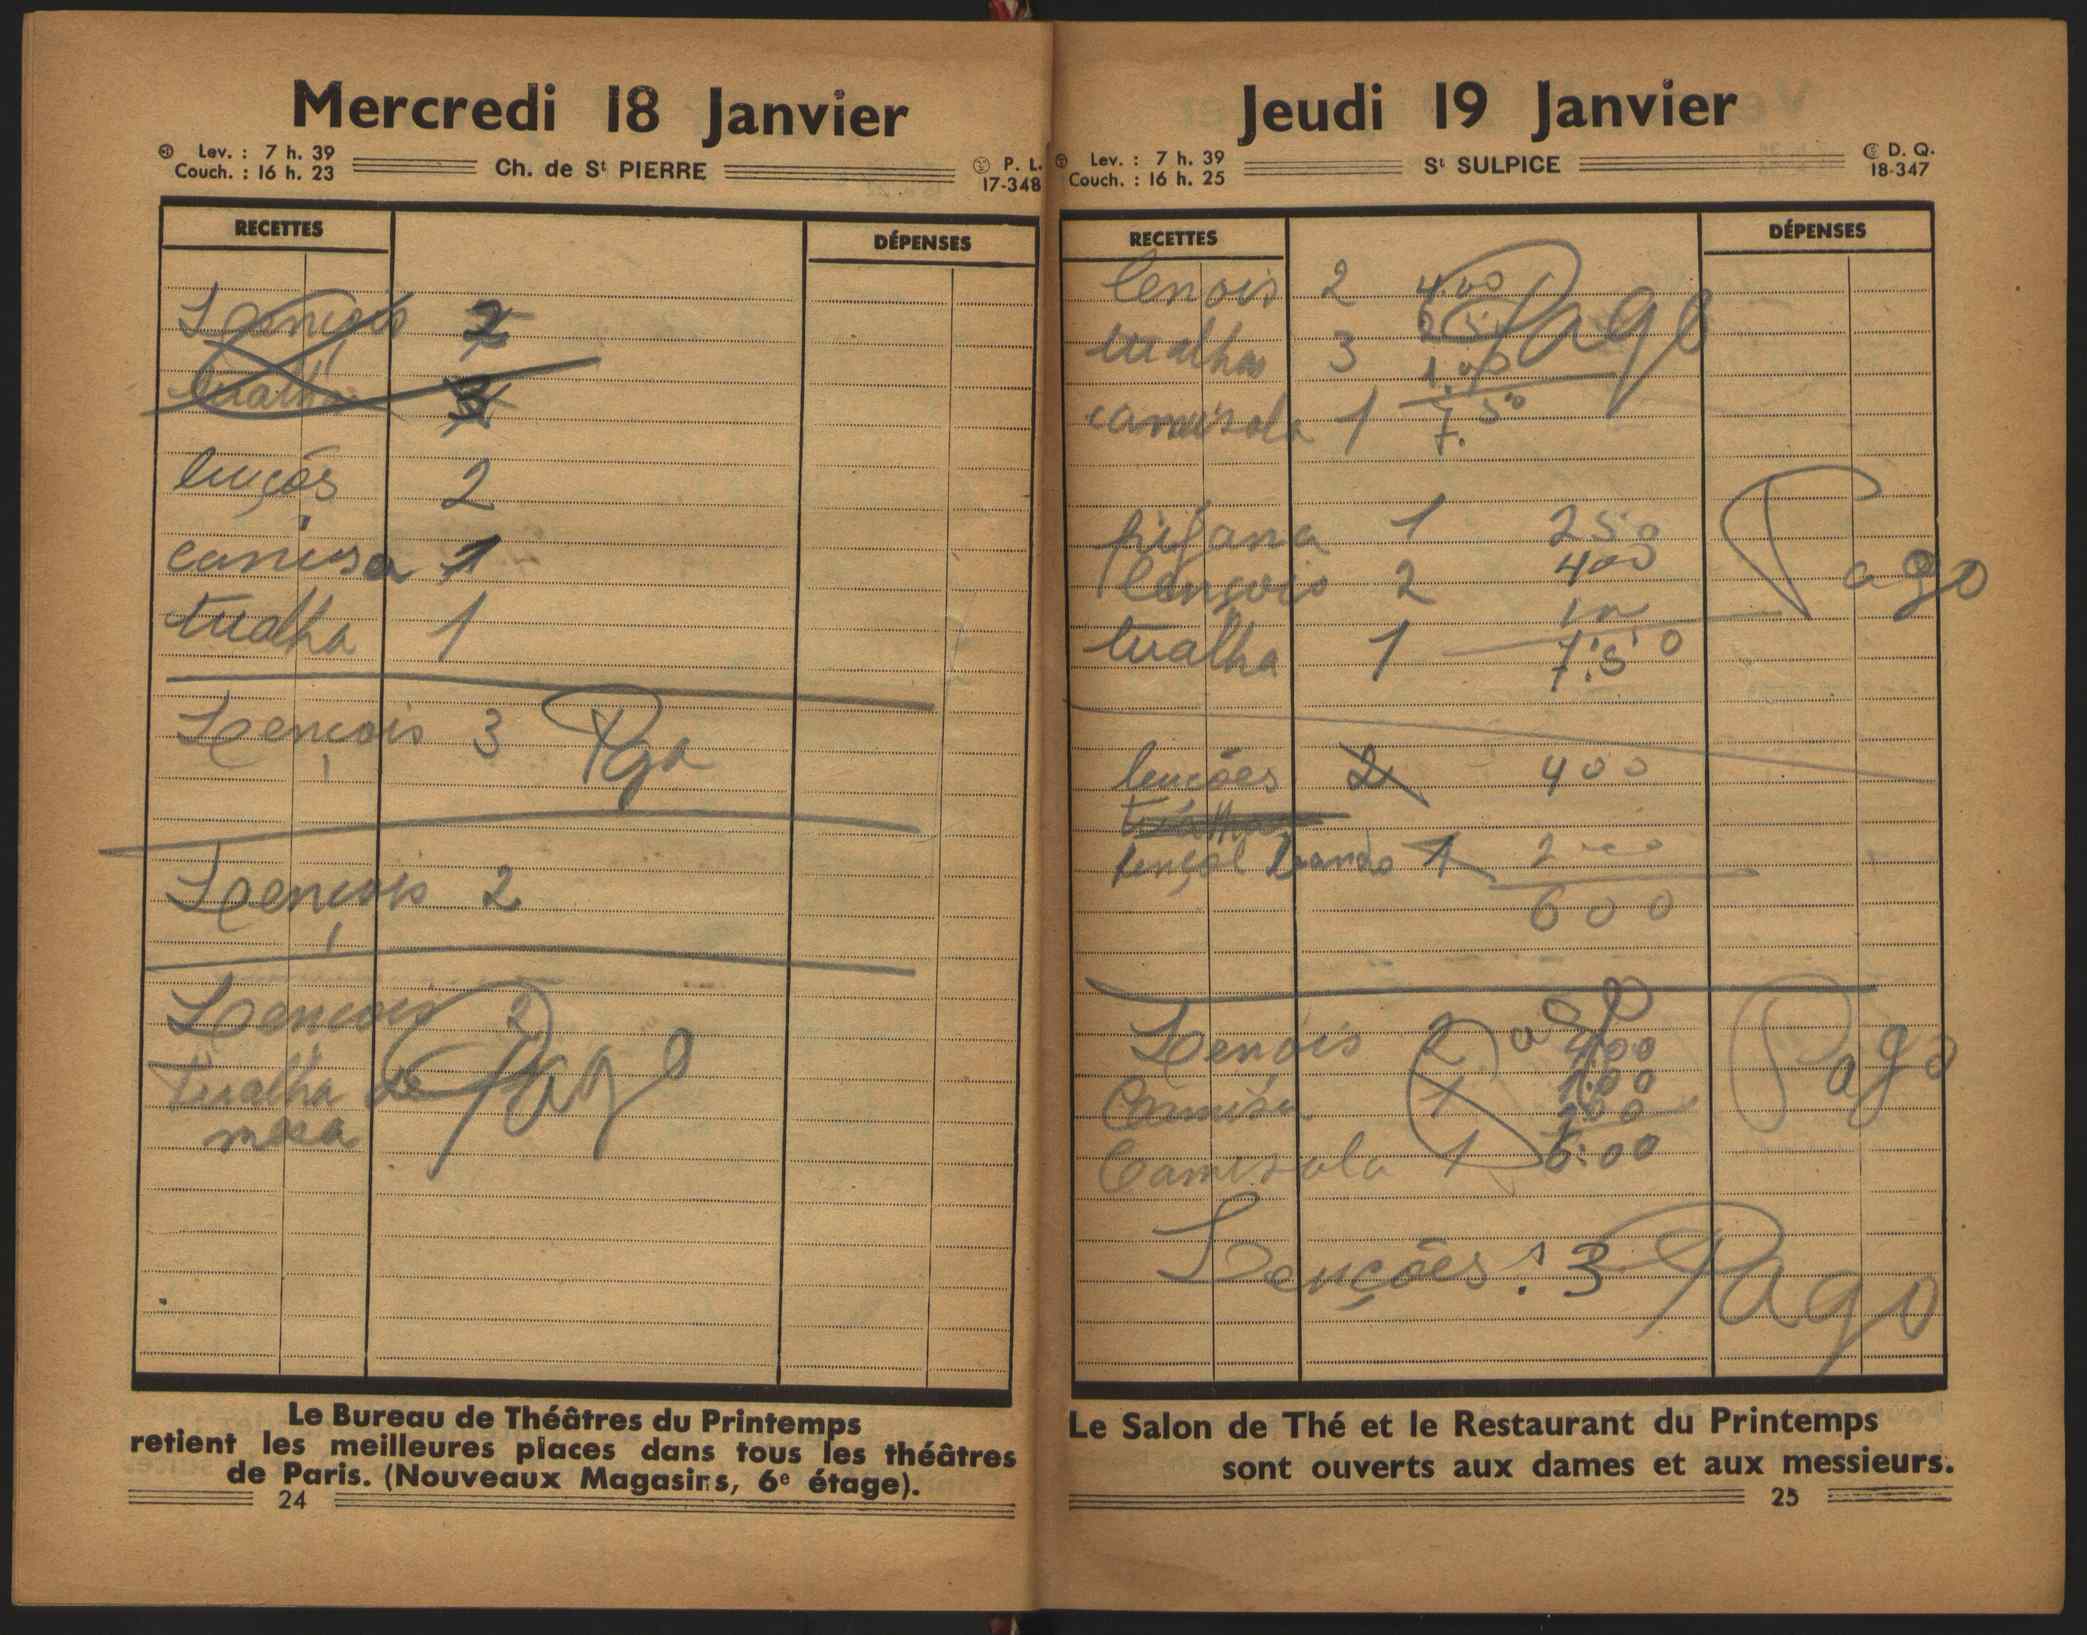 Mercredi 18 Janvier
Lev. : 7 h. 39
Couch. : 16 h. 23
Ch. de St PIERRE
P. L.
17-348
RECETTES
DÉPENSES
Lençois 2
tualha 3
luçós 2
camisa 1
tualha 1
Lençois 3 Pga
Lençois 2
Lençois 2
Tualha de Pago
mesa
Le Bureau de Théâtres du Printemps
retient les meilleures places dans tous les théâtres
de Paris. (Nouveaux Magasins, 6e étage).
24
Jeudi 19 Janvier
Lev. : 7 h. 39
Couch. : 16 h. 25
St SULPICE
D. Q.
18-347
RECETTES
DÉPENSES
lenois 2 4.00 Pago
tualhas 3
camisola 1 7.50
1 250
Lençois 2 400 Pago
tualha 1 7.50
lençóes 2 400
lençol 1 2
600
Lenois 2 400 Pago
Camisa 1 1.00
Camisola 1 6.00
Lençóes: 3 Pago
Le Salon de Thé et le Restaurant du Printemps
sont ouverts aux dames et aux messieurs.
25